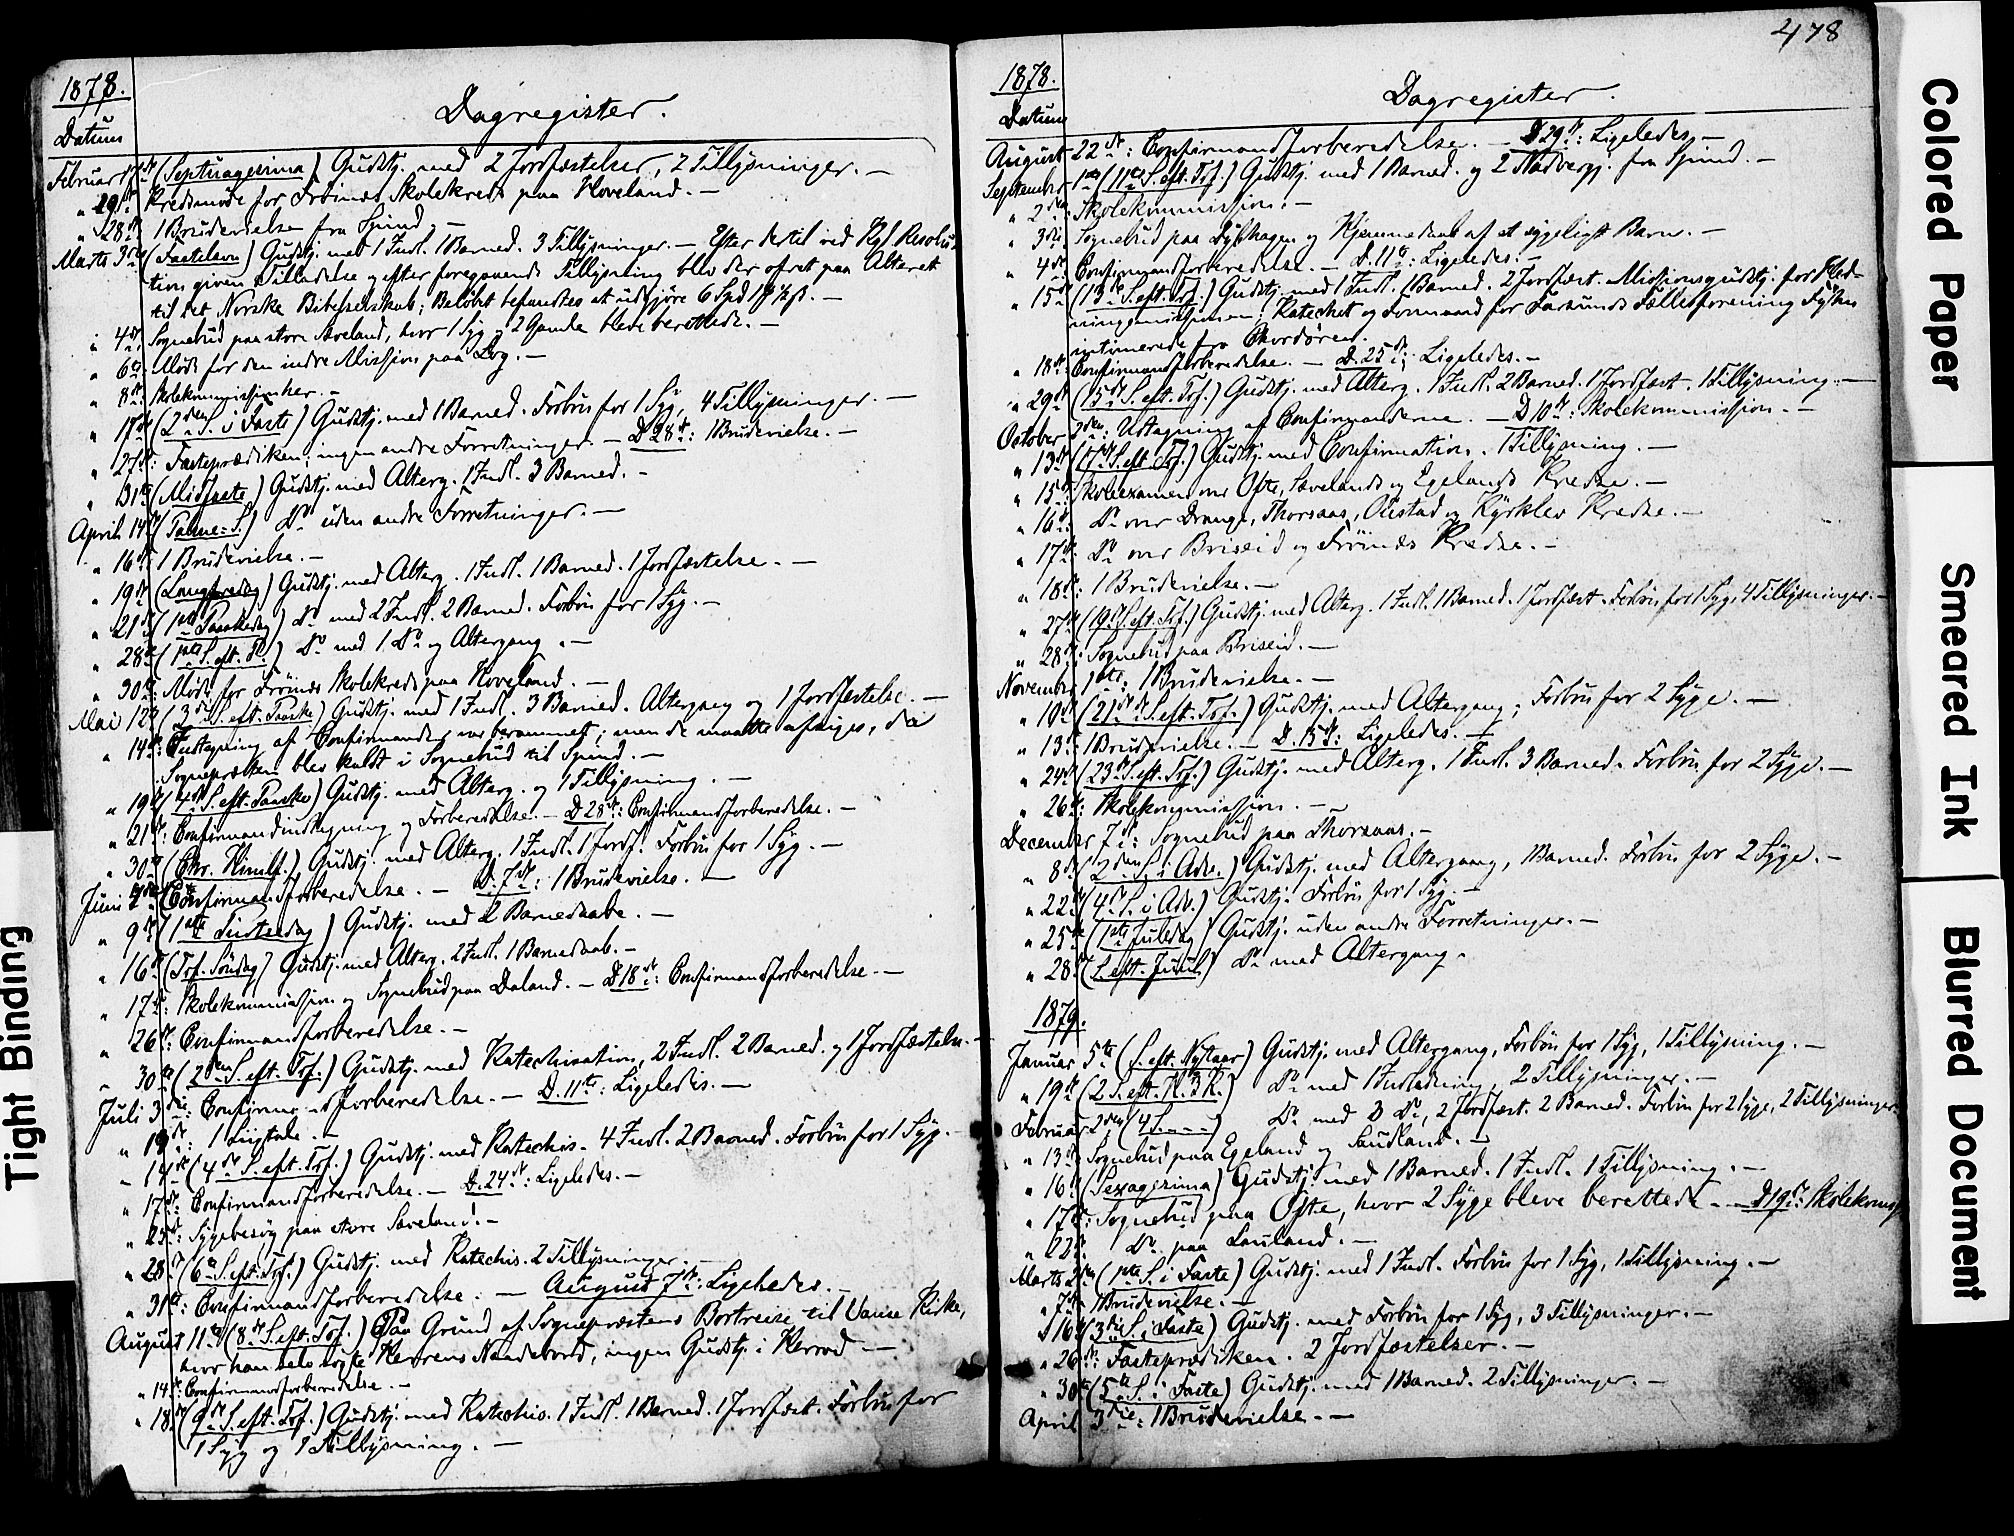 1878.
Datum
Dagregister.
Februar 17de (Septuagesima) Gudstj. med 2 Jordfæstelser, 2 Tillysninger. —
" 21de Kredsmøde for Frøinæs Skolekreds paa Hoveland. —
" 28de 1 Brudevielse fra Spind. —
Marts 3die (Fastelavn) Gudstj. med 1 Indl. 1 Barned. 3 Tillysninger. — Efter dertil ved Kgl. Resolu-
tion given Tilladelse og efter foregaaende Tillysning blev der ofret paa Alteret
til det Norske Bibelselskab; Beløbet befandtes at udgjøre 6 Spd
" 4de Sognebud paa store Aveland, hvor 1 Syg og 2 Gamle bleve berettede. —
" 6te Møde for den indre Mission paa Log. —
" 8de Skolekommission her. —
" 17de (2den S. i Faste) Gudstj. med 1 Barned. Forbøn for 1 Syg, 4 Tillysninger. —
" 27de: Fasteprædiken; ingen andre Forretninger. — D. 28de: 1 Brudevielse. —
" 31te (Midfaste) Gudstj. med Alterg. 1 Indl. 3 Barned. —
April 14de (Palme-S.) Do uden andre Forretninger. —
" 16de 1 Brudevielse. —
" 19de (Langfredag) Gudstj. med Alterg. 1 Indl. 1 Barned. 1 Jordfæstelse. —
" 21de (1ste Paaskedag) Do med 2 Indl. 2 Barned. Forbøn for 1 Syg. —
" 28de (1ste S. eft. P.) Do med 1 Do og Altergang. —
" 30te: Møde for Frøinæs Skolekreds paa Hoveland. —
Mai 12te (3die S. eft. Paaske) Gudstj. med 1 Indl. 3 Barned. Altergang og 1 Jordfæstelse. —
" 14de: Indtegning af Confirmander var berammet; men de maatte afsiges, da
Sognepræsten blev kaldt i Sognebud til Spind. —
" 19de (4de S. eft. Paaske) Gudstj. med Alterg. og 1 Tillysning. —
" 21de: Confirmandindtegning og Forberedelse. — D. 28de: Confirmandforberedelse. —
" 30te (Chr. Himlf.) Gudstj. med Alterg. 1 Indl. 1 Jordf. Forbøn for 1 Syg. —
Juni 4de Confirmandforberedelse. — D. 7de: 1 Brudevielse. —
" 9de (1ste Pintsedag) Gudstj. med 2 Barnedaabe. —
" 16de (Trf. Søndag) Gudstj. med Alterg. 2 Indl. 1 Barnedaab. —
" 17de: Skolekommission og Sognebud paa Daland. — D. 18de: Confirmandforberedelse. —
" 26de: Confirmandforberedelse. —
" 30te (2den S. eft. Trf.) Gudstj. med Katechisation, 2 Indl. 2 Barned. og 1 Jordfæstelse. —
Juli 3die: Confirmandforberedelse. — D. 11te: Ligeledes. —
" 1 Liigtale. —
" 14de (4de S. eft. Trf.) Gudstj. med Katechis. 4 Indl. 2 Barned. Forbøn for 1 Syg. —
" 17de: Confirmandforberedelse. — D. 24de: Ligeledes. —
" 25de: Sygebesøg paa store Saveland. —
" 28de (6te S. eft. Trf.) Gudstj. med Katechis. 2 Tillysninger. —
" 31te: Confirmandforberedelse. — August 7de: Ligeledes. —
August 11te (8de S. eft. Trf.) Paa Grund af Sognepræstens Bortreise til Vanse Kirke,
hvor han selv søgte Herrens Naadebord, ingen Gudstj. i Herred —
" 14de: Confirmandforberedelse. —
" 18de (9de S. eft. Trf.) Gudstj. med Katechis. 1 Indl. 1 Barned. 1 Jordfæst. Forbøn for
1 Syg og 1 Tillysning. —
478
1878.
Datum
Dagregister.
August 22de: Confirmandforberedelse. — D. 29de: Ligeledes. —
September 1ste (11te S. eft. Trf.) Gudstj. med 1 Barned. og 2 Nadverg. fra Spind. —
" 2den: Skolekommission. —
" 3die Sognebud paa og Hjemmedaab af et sygeligt Barn. —
" 4de Confirmandforberedelse. — D. 11te: Ligeledes. —
" 15de (13de S. eft. Trf.) Gudstj. med 1 Indl. 1 Barned. 2 Jordfæst. Missionsgudstj. for Hed-
ningemissionen; Katechet og Formand for Farsunds Fællesforening
intimerede fra Chordøren.
" 18de: Confirmandforberedelse. — D. 25de: Ligeledes. —
" 29de (15de S. eft. Trf.) Gudstj. med Alterg. 1 Indl. 2 Barned. 1 Jordfæst. 1 Tillysning. —
October 2den: Udtagning af Confirmanderne. — D. 10de: Skolekommission. —
" 13de (17de S. eft. Trf.) Gudstj. med Confirmation. 1 Tillysning. —
" 15de: Skoleexamen over Ofte, Savelands og Egelands Kredse. —
" 16de: Do over Drange, Thorsaas, Ølstad og Kyrklev Kredse. —
" 17de: Do over Briseid og Frøinæs Kredse. —
" 18de: 1 Brudevielse. —
" 27de (19de S. eft. Trf.) Gudstj. med Alterg. 1 Indl. 1 Barned. 1 Jordfæst. Forbøn for 1 Syg, 4 Tillysninger. —
" 28de: Sognebud paa Briseid. —
November 1ste: 1 Brudevielse. —
" 10de (21de S. eft. Trf.) Gudstj. med Altergang; Forbøn for 2 Syge. —
" 13de: 1 Brudevielse. — D. 15de: Ligeledes. —
" 24de (23de S. eft. Trf.) Gudstj. med Alterg. 1 Indl. 3 Barned. Forbøn for 2 Syge. —
" 26de: Skolekommission. —
December 7de: Sognebud paa Thorsaas. —
" 8de (2den S. i Adv.) Gudstj. med Altergang, 1 Barned. Forbøn for 2 Syge. —
" 22de (4de S. i Adv.) Gudstj. Forbøn for 1 Syg. —
" 25de (1ste Juledag) Gudstj. uden andre Forretninger. —
" 28de (S. eft. Juul) Do med Altergang.
1879.
Januar 5te (S. eft. Nytaar) Gudstj. med Altergang, Forbøn for 1 Syg, 1 Tillysning. —
" 19de (2 S. eft. H. 3 K.) Do med 1 Indledning, 2 Tillysninger. —
Februar 2den (4 S. — — —) Do med 3 Do, 2 Jordfæst. 2 Barned. Forbøn for 2 Syge, 2 Tillysninger.
" 13de Sognebud paa Egeland og Sauland. —
" 16de (Sexagesima) Gudstj. med 1 Barned. 1 Indl. 1 Tillysning. —
" 17de: Sognebud paa Ofte, hvor 2 Syge bleve berettede. — D. 19de: Skolekomm.
" 22de: Do paa Lauland. —
Marts 2den (1ste S. i Faste) Gudstj. med 1 Indl. Forbøn for 1 Syg, 1 Tillysning. —
" 7de 1 Brudevielse. —
" 16de (3die S. i Faste) Gudstj. med Forbøn for 1 Syg, 3 Tillysninger. —
" 26de: Fasteprædiken. 2 Jordfæstelser. —
" 30te (5te S. i Faste) Gudstj. med 1 Barned. 2 Tillysninger. —
April 3die: 1 Brudevielse. —
Tight Binding
Colored Paper
Smeared Ink
Blurred Document